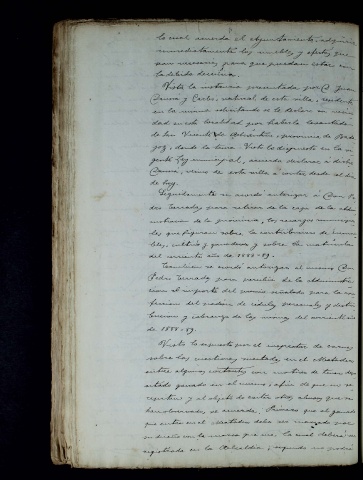 la cual acuerda el Ayuntamiento adquiera
inmediatamente los muebles y efectos que
sean necesarios para que puedan estar con
la debida decencia.
Vista la instancia presentada por D. Juan
y Carlos, natural de esta villa, residente
en la misma solicitando se le declare su vecin-
dad en esta localidad por haberla levantado
de San Vicente de Alcántara, provincia de Bada
joz, donde la tenia. Visto lo dispuesto en la vi-
gente Ley municipal, acuerda declarar á dicho
vecino de esta villa á contar desde el dia
de hoy.
Seguidamente se acordó autorizar á Don Pe
dro para retirar de la caja de la Admi-
nistracion de la provincia, los recargos municipa-
les que figuran sobre la contribucion de inmue-
bles, cultivo y ganaderia y sobre la matricula
del corriente año de 1888-89.
Tambien se acordó autorizar al mismo Don
Pedro para percibir de la Administra-
cion el importe del premio señalado para la con-
feccion del padron de cédulas personales y distri-
bucion y cobranza de las mismas del corriente año
de 1888-89.
Visto lo expuesto por el inspector de carnes
sobre las cuestiones suscitadas en el Matadero
entre algunos cortantes con motivo de tener de-
ganado en el mismo, á fin de que no se
repitan y al objeto de cortar otros abusos que se
han observado, se acuerda: Primero que el ganado
que entre en el Matadero deba ser marcado por
su dueño con la marca que use, la cual deberá ser
registrada en la Alcaldia; segundo no podrá